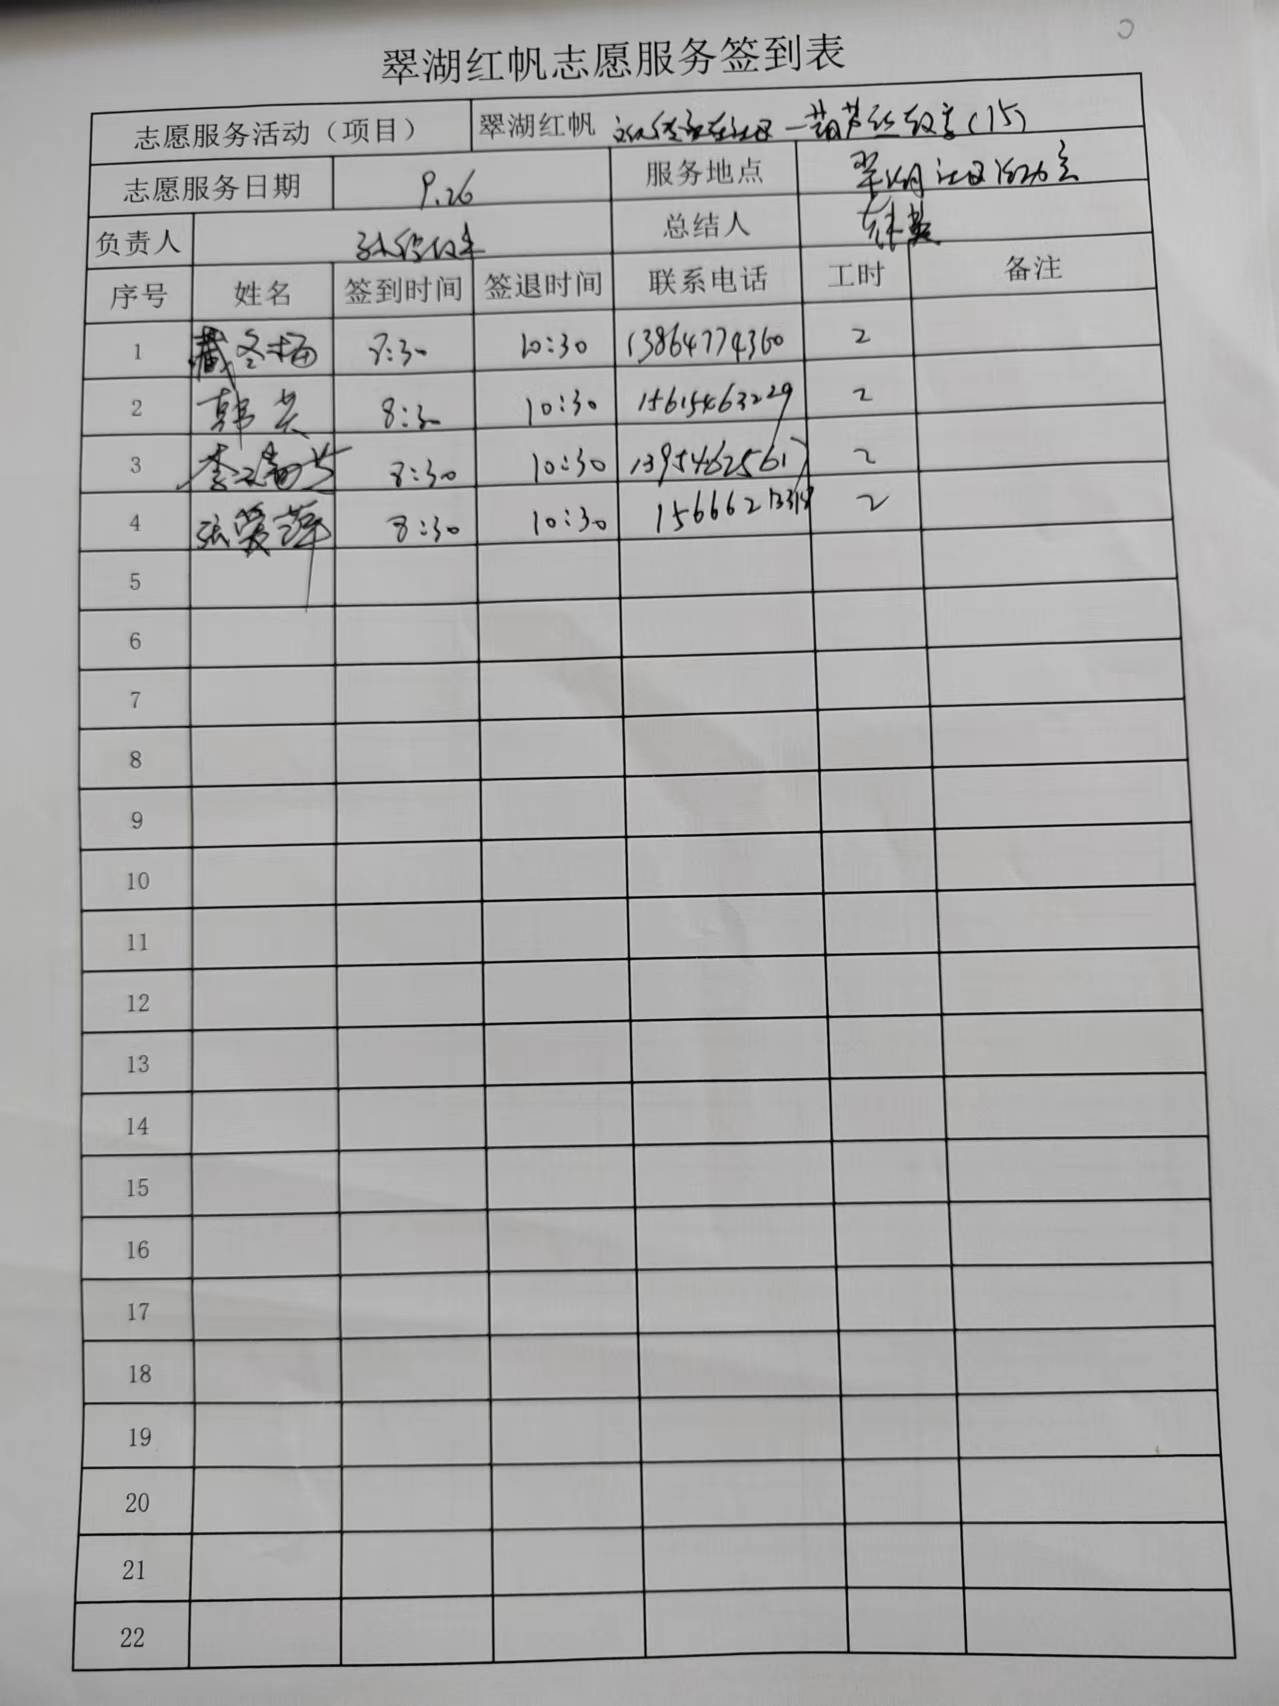 翠湖红帆志愿服务签到表
志愿服务活动（项目） 翠湖红帆 一葫芦丝教学（15）
志愿服务日期 9.26 服务地点 翠湖社区活动室
负责人 总结人 韩英
序号 姓名 签到时间 签退时间 联系电话 工时 备注
1 藏冬梅 8:30 10:30 13864774360 2
2 韩英 8:30 10:30 15615463229 2
3 8:30 10:30 13954625617 2
4 张爱萍 8:30 10:30 2
5
6
7
8
9
10
11
12
13
14
15
16
17
18
19
20
21
22